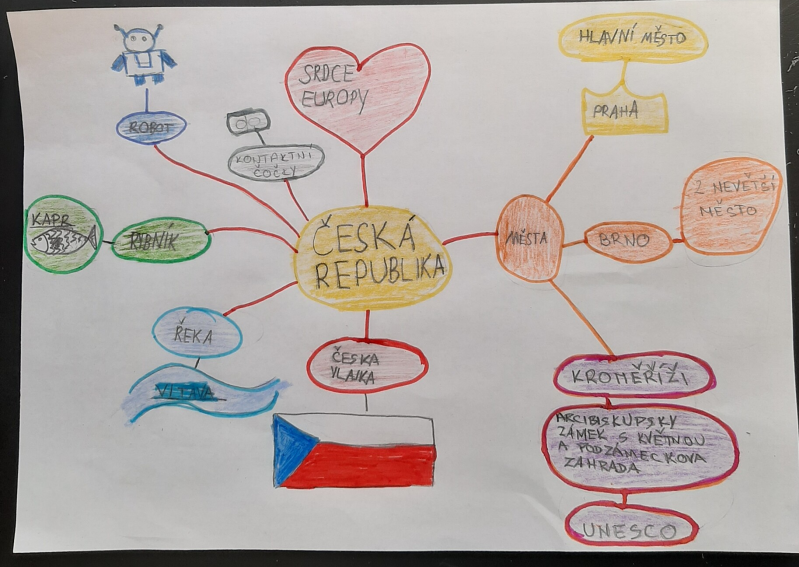 HLAVNÍ MĚSTO
PRAHA
SRDCE
EUROPY
ROBOT
KONTAKTNÍ
ČOČKY
KAPR
RIBNÍK
ČESKÁ
REPUBLIKA
MĚSTA
BRNO
2 NEVĚTŠÍ
MĚSTO
ŘEKA
VLTAVA
ČESKA
VLAJKA
KROMĚŘÍŽI
ARCIBISKUPSKY
ZÁMEK S KVĚTNOU
A PODZÁMECKOVA
ZAHRADA
UNESCO